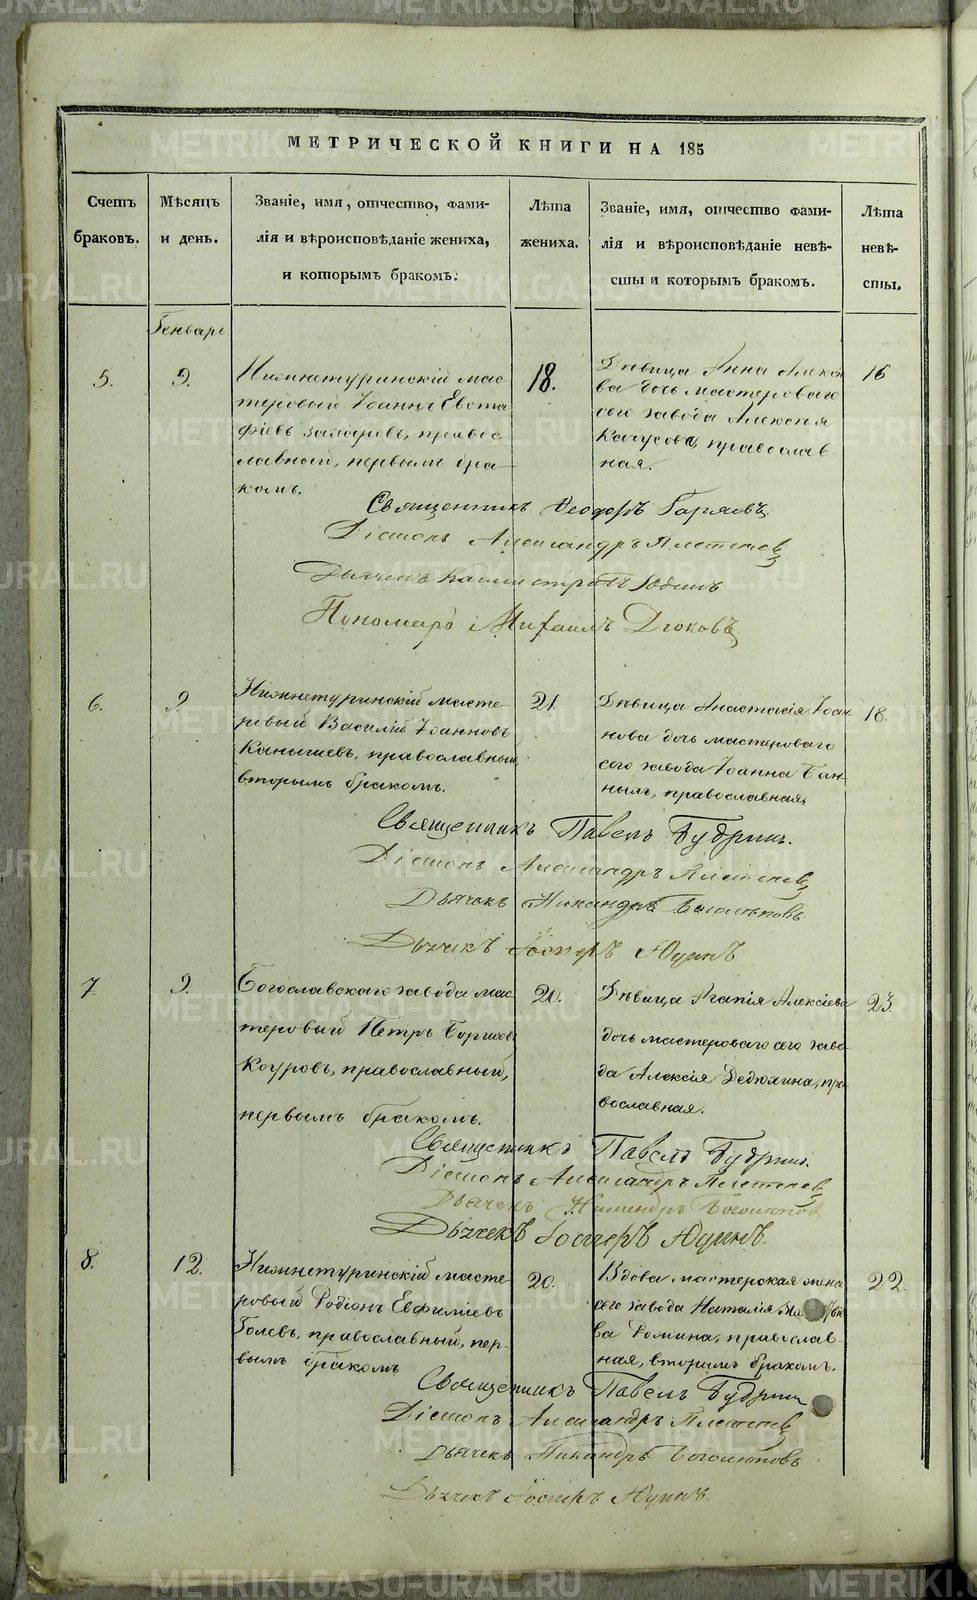 МЕТРИЧЕСКОЙ КНИГИ НА 185
Счетъ браковъ.
Мѣсяцъ и день.
Званіе, имя, отчество, фами-
лія и вѣроисповѣданіе жениха,
и которымъ бракомъ.
Лѣта жениха.
Званіе, имя, отчество фами-
лія и вѣроисповѣданіе невѣ-
сты и которымъ бракомъ.
Лѣта
невѣ-
сты.
Генварь
5.
9.
Нижнетуринскій мас
теровый Іоаннъ Евста
фіевъ Захаровъ, правос
лавный, первымъ бра
комъ.
18.
Дѣвица Анна Алексѣ
ва дочь мастероваго
сего завода Алексѣя
православ
ная.
16
Священникъ Ѳеодоръ Горяевъ
Діаконъ Александръ
Дьячекъ Каллистратъ Юдинъ
Пономарь Михаилъ Дюковъ
6.
9.
Нижнетуринскій масте-
ровый Василій Іоанновъ
Канышевъ, православный,
вторымъ бракомъ.
21.
Дѣвица Анастасія Іоан-
нова дочь мастероваго
сего завода Іоанна
православная,
18.
Священникъ Павелъ Будринъ.
Діаконъ Александръ
Дьячекъ Никандръ Боголѣповъ
Дьячекъ
7.
9.
Богословскаго завода мас
теровый Петръ Борисовъ
Коуровъ, православный,
первымъ бракомъ.
20.
Дѣвица Агапія Алексіева
дочь мастероваго сего заво
да Алексія Дедюхина, пра
вославная.
23.
Священникъ Павелъ Будринъ.
Діаконъ Александръ
Дьячекъ Никандръ Боголѣповъ
Дьячекъ
8.
12.
Нижнетуринскій масте-
ровый Родіонъ Евфиміевъ
Голевъ, православный, пер-
вымъ бракомъ
20.
Вдова мастерская жена
сего завода Наталія
ва Ромина, православ-
ная, вторымъ бракомъ.
22.
Священникъ Павелъ Будринъ
Діаконъ Александръ
Дьячекъ Никандръ Боголѣповъ
Дьячекъ
METRIKI.GASO-URAL.RU